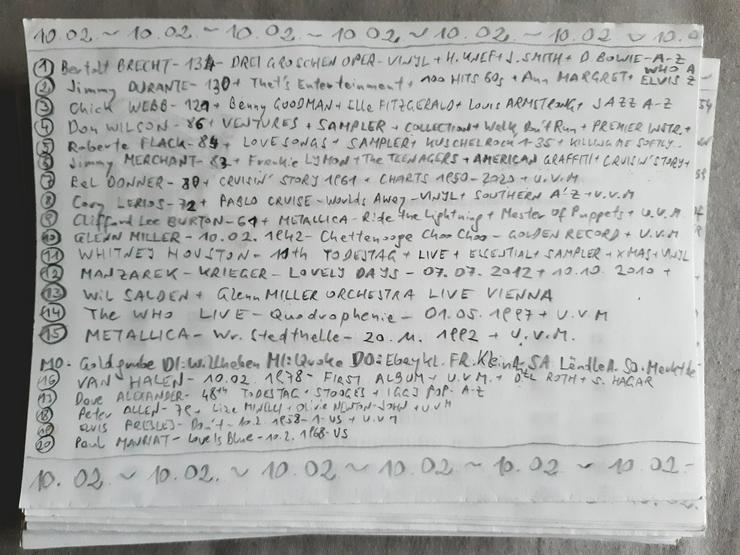 10.02 ~ 10.02. ~ 10.02. ~ 10.02 ~ 10.02 ~ 10.02 ~ 10.0
1 Bertolt BRECHT - 134 - DREI GROSCHEN OPER - VINYL + H. KNEF + J. SMITH + D. BOWIE - A-Z
WHO A
2 Jimmy DURANTE - 130 + That's Entertainment + 100 HITS 60s + Ann MARGRET + ELVIS Z
3 Chick WEBB - 121 + Benny GOODMAN + Elle FITZGERALD + Louis ARMSTRONG + JAZZ A-Z
4 Don WILSON - 86 + VENTURES + SAMPLER + COLLECTION + Walk Don't Run + PREMIER INSTR. +
5 Roberte FLACK - 84 + LOVESONGS + SAMPLER + KUSCHELROCK 1-35 + KILLING ME SOFTLY
6 Jimmy MERCHANT - 83 + Frankie LYMON + The TEENAGERS + AMERICAN GRAFFITI + CRUISIN' STORY +
7 Ral DONNER - 80 + CRUISIN' STORY 1961 + CHARTS 1950-2020 + U.V.M
8 Cory LERIOS - 72 + PABLO CRUISE - Worlds Away - VINYL + SOUTHERN A'Z + U.V.M
9 Clifford Lee BURTON - 61 + METALLICA - Ride the Lightning + Master of Puppets + U.V.M
10 GLENN MILLER - 10.02.1942 - Chattanooga Choo Choo - GOLDEN RECORD + U.V.M
11 WHITNEY HOUSTON - 11th TODESTAG + LIVE + ESSENTIAL + SAMPLER + XMAS + VINYL
12 MANZAREK - KRIEGER - LOVELY DAYS - 07.07.2012 + 10.10.2010 +
13 WIL SALDEN + Glenn MILLER ORCHESTRA LIVE VIENNA
14 The WHO LIVE - Quadrophenie - 01.05.1997 + U.V.M
15 METALLICA - Wr. Stadthalle - 20.11.1992 + U.V.M.
MO. Goldgrube DI: Willhaben MI: Quoke DO: Ebaykl. FR. Kleina. SA Ländle A. So. Marktbe
16 VAN HALEN - 10.02.1978 - FIRST ALBUM + U.V.M. + ROTH + S. HAGAR
17 Dave ALEXANDER - 48th TODESTAG + STOOGES + IGGY POP - A-Z
18 Peter ALLEN - 79 + Liza MINELLY + Olivie NEWTON-JOHN + U.V.M
19 ELVIS PRESLEY - Don't - 10.2.1958 - 1-US + U.V.M
20 Paul MAURIAT - Love Is Blue - 10.2.1968 - US
10.02. ~ 10.02. ~ 10.02. ~ 10.02. ~ 10.02. ~ 10.02. ~ 10.02 -